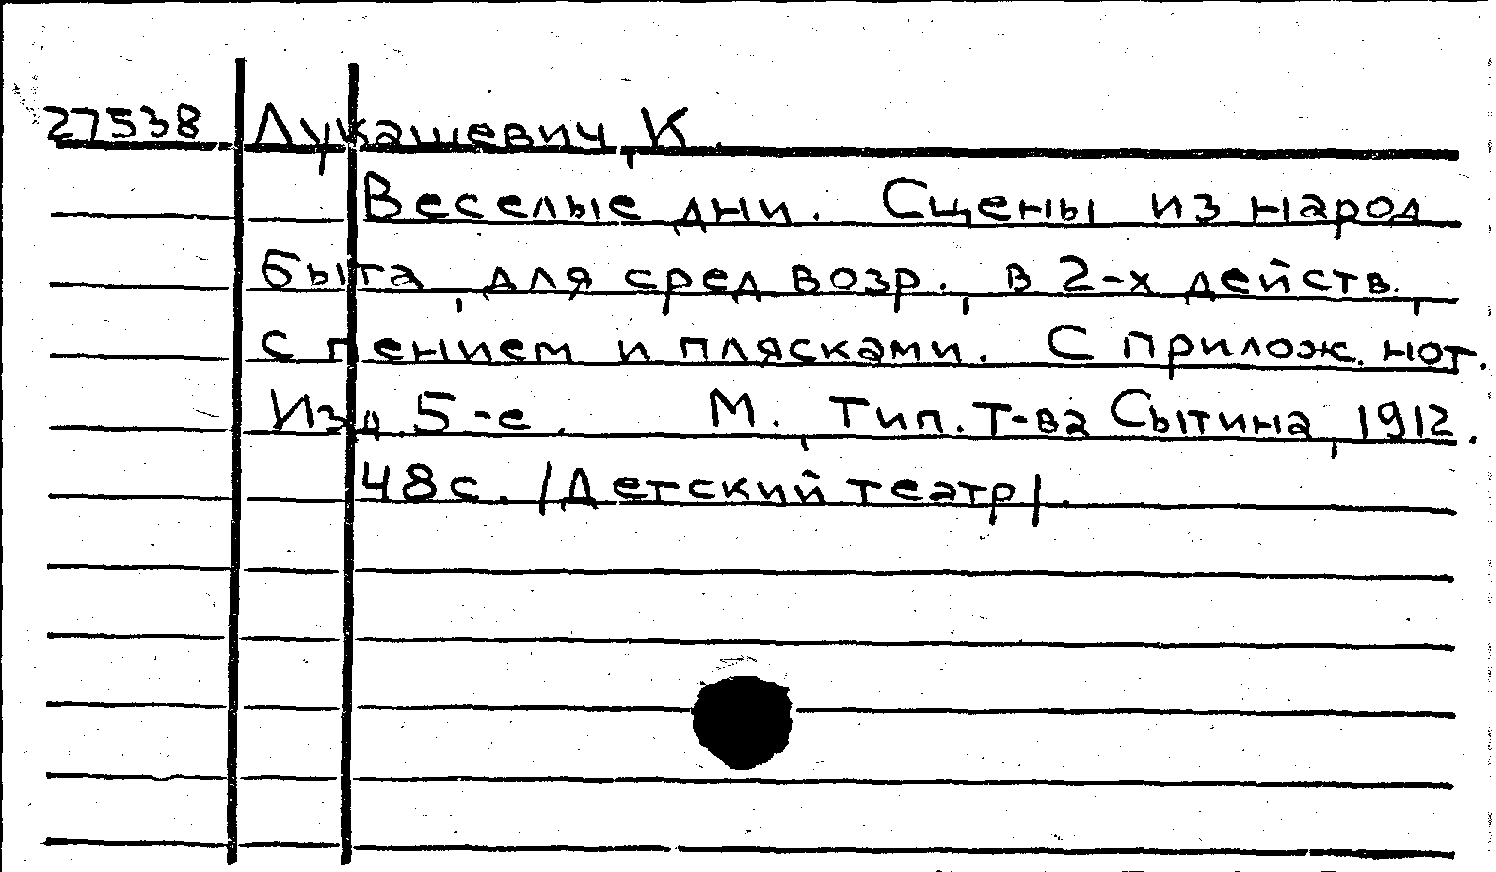 27538 Лукашевич, К.
Веселые дни. Сцены из народ
быта, для сред возр., в 2-х действ.,
с пением и плясками. С прилож. нот.
Изд. 5-е. М., Тип. Т-ва Сытина, 1912.
48 с. /Детский театр/.